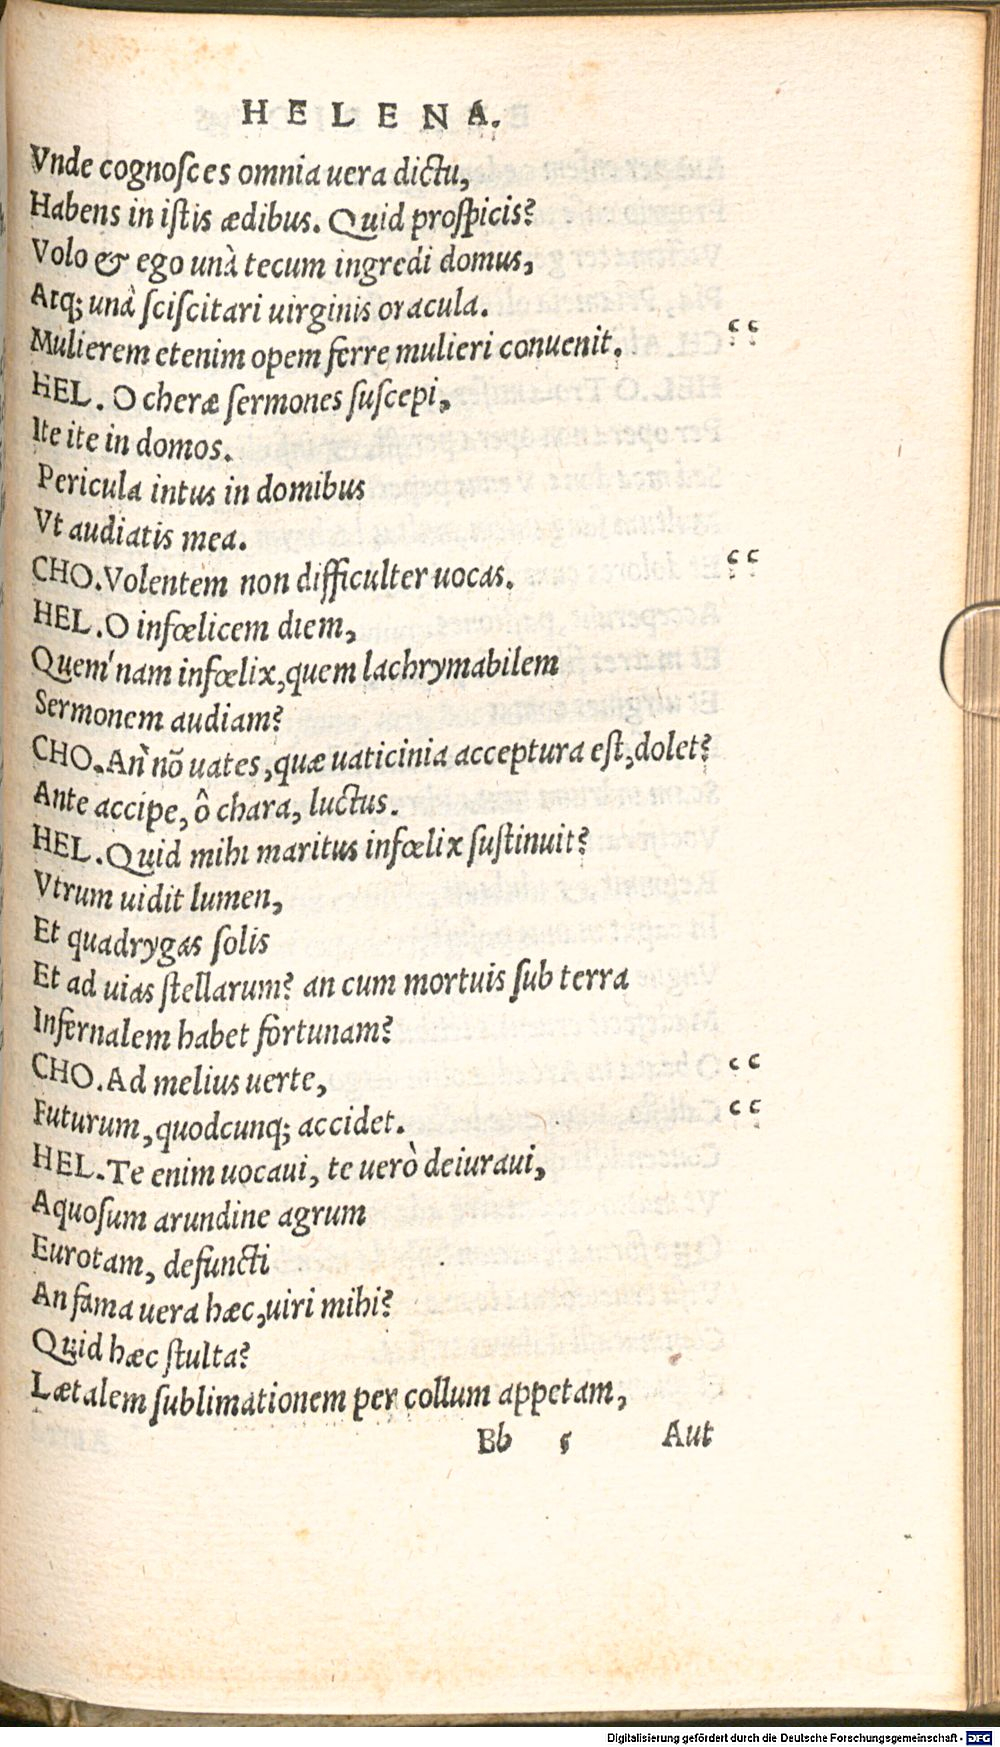 HELENA.
Vnde cognoſces omnia uera dictu,
Habens in iſtis ædibus. Quid proſpicis?
Volo & ego unà tecum ingredi domus,
Atq; unà ſciſcitari uirginis oracula.
Mulierem etenim opem ferre mulieri conuenit. “
HEL. O cheræ ſermones ſuſcepi,
Ite ite in domos.
Pericula intus in domibus
Vt audiatis mea.
CHO. Volentem non difficulter uocas. “
HEL. O infœlicem diem,
Quem'nam infœlix, quem lachrymabilem
Sermonem audiam?
CHO. An' nõ uates, quæ uaticinia acceptura eſt, dolet?
Ante accipe, ô chara, luctus.
HEL. Quid mihi maritus infœlix ſuſtinuit?
Vtrum uidit lumen,
Et quadrygas ſolis
Et ad uias ſtellarum? an cum mortuis ſub terra
Infernalem habet fortunam?
CHO. Ad melius uerte, “
Futurum, quodcunq; accidet. “
HEL. Te enim uocaui, te uerò deiuraui,
Aquoſum arundine agrum
Eurotam, defuncti
An fama uera hæc, uiri mihi?
Quid hæc ſtulta?
Lætalem ſublimationem per collum appetam,
Bb 5 Aut
Digitalisierung gefördert durch die Deutsche Forschungsgemeinschaft - DFG